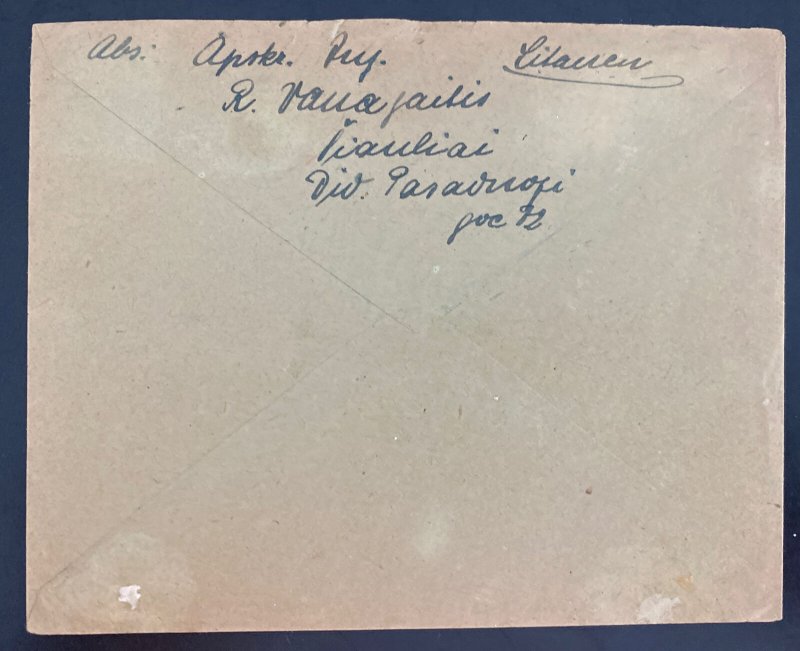 Abs: Apskr. Inž. Litauen
R. Vanagaitis
Šiauliai
Did. Pasadnoji